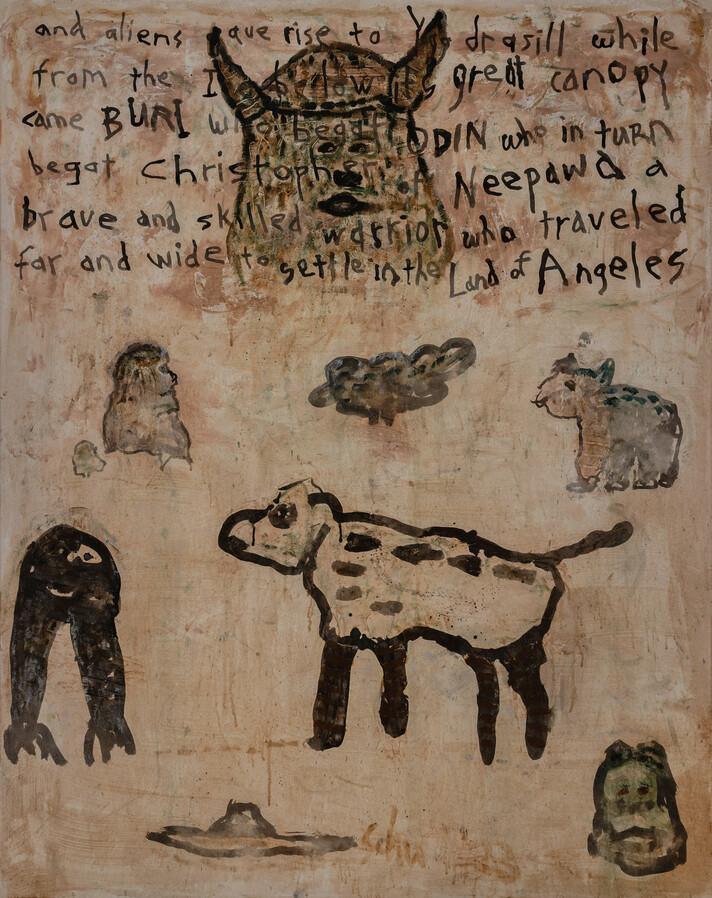 and aliens gave rise to Yggdrasill while
from the Ice below its great canopy
came BURI who begat ODIN who in turn
begat Christopher of Neepawa a
brave and skilled warrior who traveled
far and wide to settle in the Land of Angeles